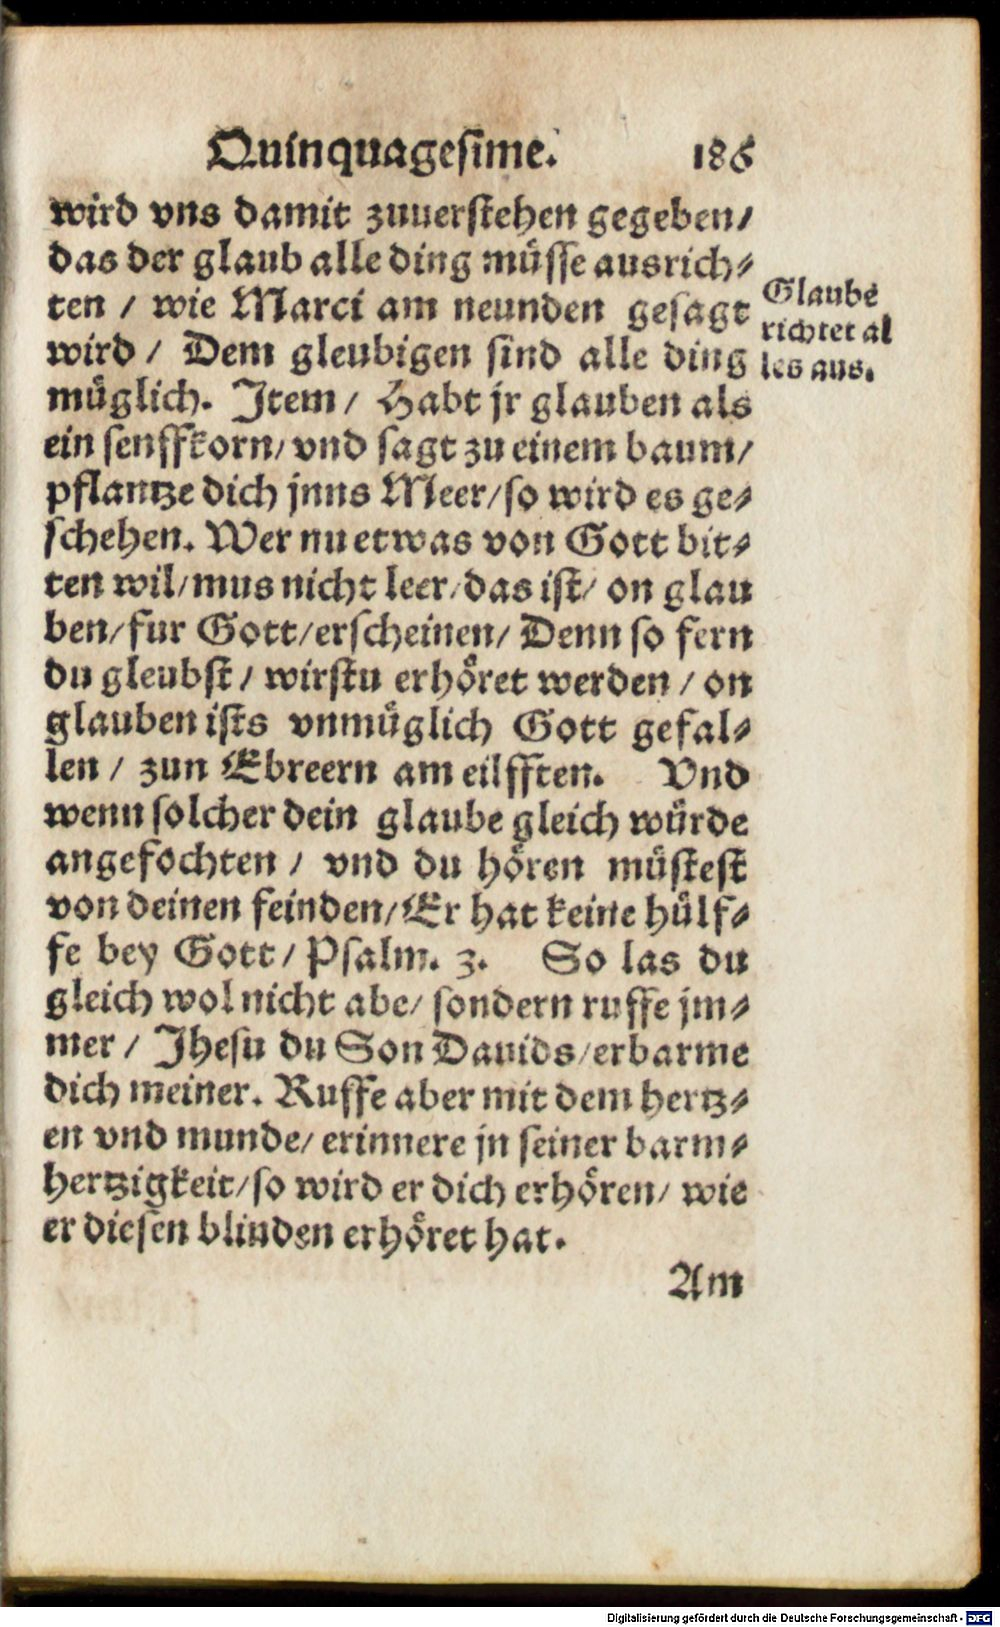 Quinquagesime. 186
wird vns damit zuuerstehen gegeben/
das der glaub alle ding müsse ausrich-
ten / wie Marci am neunden gesagt
wird / Dem gleubigen sind alle ding
müglich. Item / Habt jr glauben als
ein senffkorn/ vnd sagt zu einem baum/
pflantze dich jnns Meer/ so wird es ge-
schehen. Wer nu etwas von Gott bit-
ten wil/ mus nicht leer/ das ist/ on glau
ben/ fur Gott/ erscheinen/ Denn so fern
du gleubst / wirstu erhöret werden / on
glauben ists vnmüglich Gott gefal-
len / zun Ebreern am eilfften. Vnd
wenn solcher dein glaube gleich würde
angefochten / vnd du hören müstest
von deinen feinden/ Er hat keine hülf-
fe bey Gott / Psalm. 3. So las du
gleich wol nicht abe/ sondern ruffe jm-
mer / Jhesu du Son Dauids/ erbarme
dich meiner. Ruffe aber mit dem hertz-
en vnd munde/ erinnere jn seiner barm-
hertzigkeit/ so wird er dich erhören/ wie
er diesen blinden erhöret hat.
Am
Glaube
richtet al
les aus.
Digitalisierung gefördert durch die Deutsche Forschungsgemeinschaft - DFG